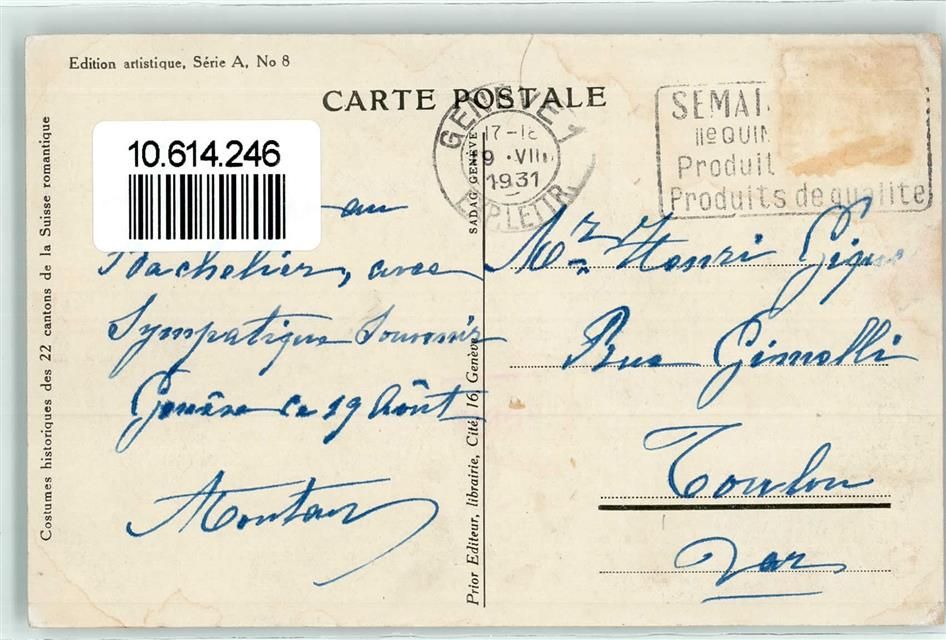 Edition artistique, Série A, No 8
CARTE POSTALE
10.614.246
GENÈVE 1
17-18
9 · VIII
1931
EXP. LETTR.
SEMAI
IIe QUIN
Produit
Produits de qualité
Costumes historiques des 22 cantons de la Suisse romantique
SADAG GENÈVE
Prior Editeur, librairie, Cité, 16, Genève
au
Bachelier, avec
Sympatique Souvenir
Genève ce 19 Août
Montan
Mr Henri
Rue Gimelli
Toulon
Var